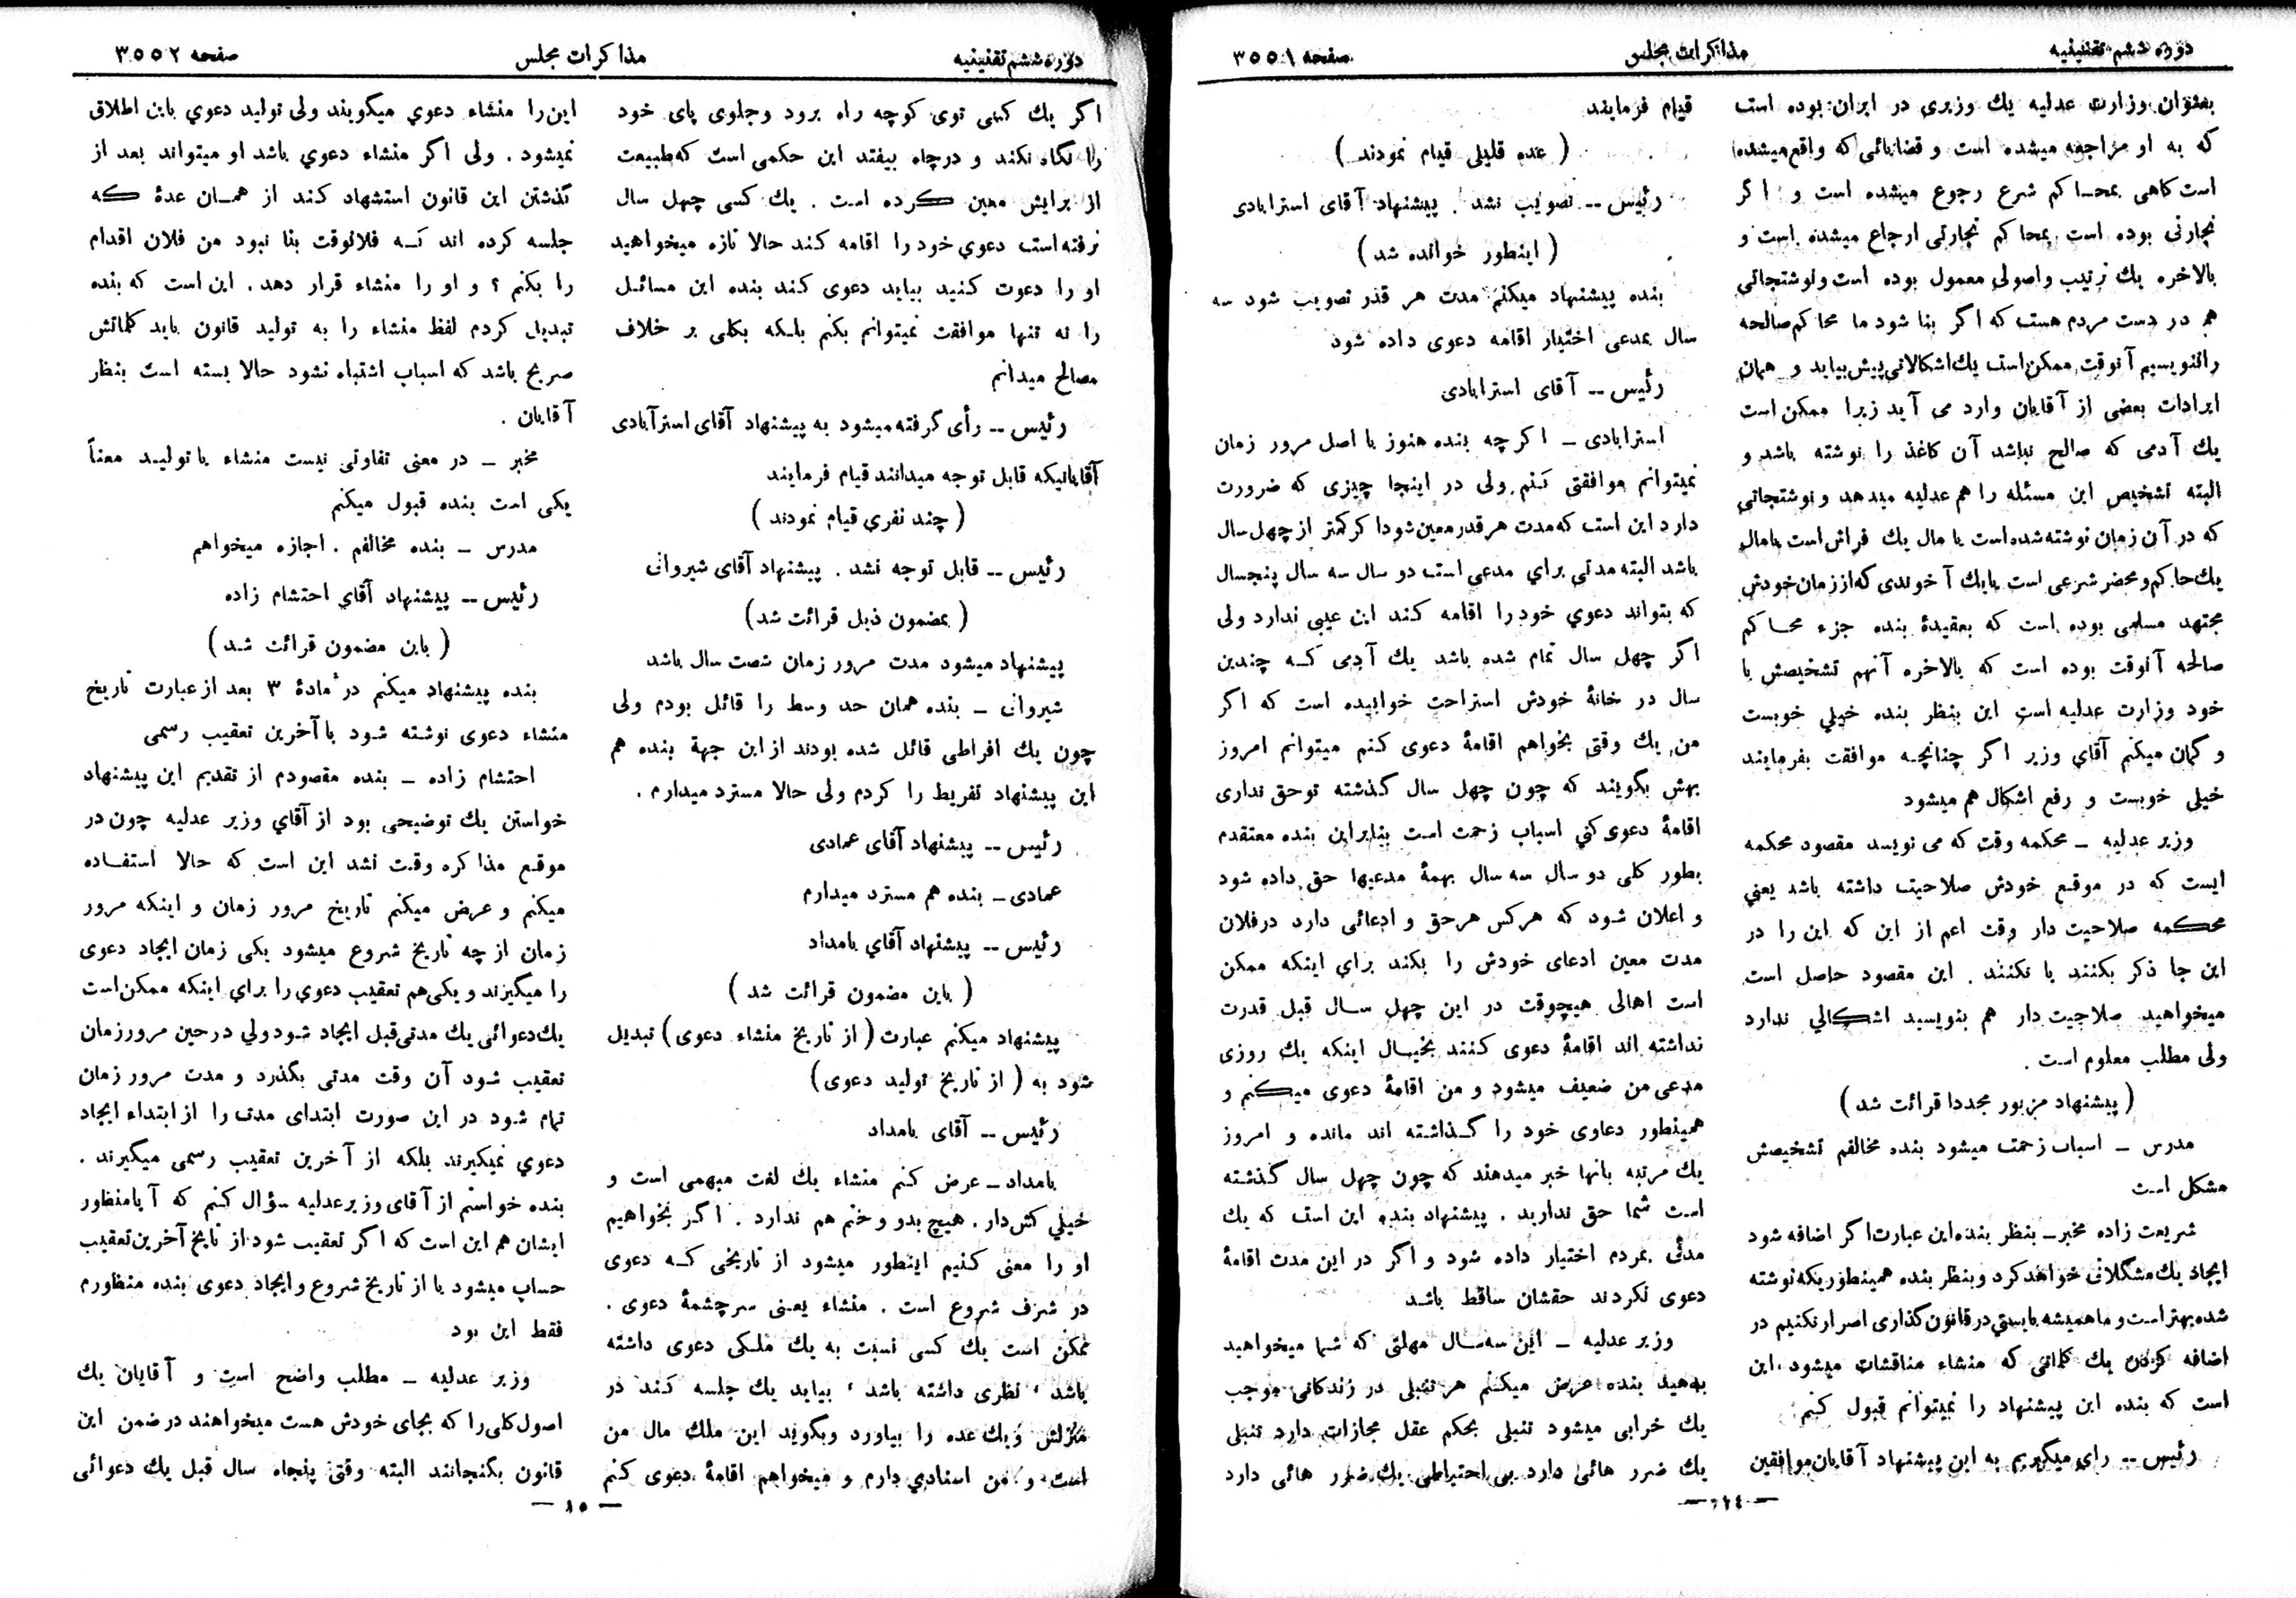 دوره ششم تقنینیه
مذاکرات مجلس
صفحه ۳۵۵۱
بعنوان وزارت عدلیه یك وزیری در ایران بوده است
که به او مراجعه میشده است و قضایائی که واقع میشده
است گاهی بمحاکم شرع رجوع میشده است و اگر
تجارتی بوده است بمحاکم تجارتی ارجاع میشده است و
بالاخره یك ترتیب و اصولی معمول بوده است و نوشتجاتی
هم در دست مردم هست که اگر بنا شود ما محاکم صالحه
را ننویسیم آنوقت ممکن است یك اشکالاتی پیش بیاید و همان
ایرادات بعضی از آقایان وارد می آید زیرا ممکن است
یك آدمی که صالح نباشد آن کاغذ را نوشته باشد و
البته تشخیص این مسئله را هم عدلیه میدهد و نوشتجاتی
که در آن زمان نوشته شده است یا مال یك فراش است یا مال
یك حاکم و محضر شرعی است یا یك آخوندی که از زمان خودش
مجتهد مسلمی بوده است که بعقیدهٔ بنده جزء محاکم
صالحه آنوقت بوده است که بالاخره آنهم تشخیصش با
خود وزارت عدلیه است این بنظر بنده خیلی خوبست
و گمان میکنم آقای وزیر اگر چنانچه موافقت بفرمایند
خیلی خوبست و رفع اشکال هم میشود
وزیر عدلیه ـ محکمه وقت که می نویسد مقصود محکمه
ایست که در موقع خودش صلاحیت داشته باشد یعنی
محکمه صلاحیت دار وقت اعم از این که این را در
این جا ذکر بکنند یا نکنند . این مقصود حاصل است
میخواهید صلاحیت دار هم بنویسید اشکالی ندارد
ولی مطلب معلوم است .
(پیشنهاد مزبور مجددا قرائت شد)
مدرس ـ اسباب زحمت میشود بنده مخالفم تشخیصش
مشکل است
شریعت زاده مخبر ـ بنظر بنده این عبارت اگر اضافه شود
ایجاد یك مشکلاتی خواهد کرد و بنظر بنده همینطوریکه نوشته
شده بهتر است و ما همیشه بایستی در قانون گذاری اصرار نکنیم در
اضافه کردن یك کلماتی که منشاء مناقشات میشود این
است که بنده این پیشنهاد را نمیتوانم قبول کنم
رئیس -- رای میگیریم به این پیشنهاد آقایان موافقین
قیام فرمایند
(عده قلیلی قیام نمودند)
رئیس -- تصویب نشد . پیشنهاد آقای استرابادی
(اینطور خوانده شد)
بنده پیشنهاد میکنم مدت هر قدر تصویب شود سه
سال بمدعی اختیار اقامه دعوی داده شود
رئیس -- آقای استرابادی
استرابادی ـ اگرچه بنده هنوز با اصل مرور زمان
نمیتوانم موافقتی کنم ولی در اینجا چیزی که ضرورت
دارد این است که مدت هر قدر معین شود اگر کمتر از چهل سال
باشد البته مدتی برای مدعی است دو سال سه سال پنجسال
که بتواند دعوی خود را اقامه کند این عیبی ندارد ولی
اگر چهل سال تمام شده باشد یك آدمی که چندین
سال در خانهٔ خودش استراحت خوابیده است که اگر
من یك وقتی بخواهم اقامهٔ دعوی کنم میتوانم امروز
بهش بگویند که چون چهل سال گذشته تو حق نداری
اقامهٔ دعوی کنی اسباب زحمت است بنابراین بنده معتقدم
بطور کلی دو سال سه سال بهمهٔ مدعیها حق داده شود
و اعلان شود که هر کس هر حق و ادعائی دارد در فلان
مدت معین ادعای خودش را بکند برای اینکه ممکن
است اهالی هیچوقت در این چهل سال قبل قدرت
نداشته اند اقامهٔ دعوی کنند بخیال اینکه یك روزی
مدعی من ضعیف میشود و من اقامهٔ دعوی میکنم و
همینطور دعاوی خود را گذاشته اند مانده و امروز
یك مرتبه بآنها خبر میدهند که چون چهل سال گذشته
است شما حق ندارید . پیشنهاد بنده این است که یك
مدتی بمردم اختیار داده شود و اگر در این مدت اقامهٔ
دعوی نکردند حقشان ساقط باشد
وزیر عدلیه ـ این سه سال مهلتی که شما میخواهید
بدهید بنده عرض میکنم هر تنبلی در زندگانی موجب
یك خرابی میشود تنبلی بحکم عقل مجازات دارد تنبلی
یك ضرر هائی دارد بی احتیاطی یك ضرر هائی دارد
— ۱٤ —
دوره ششم تقنینیه
مذاکرات مجلس
صفحه ۳۵۵۲
اگر یك کسی توی کوچه راه برود و جلوی پای خود
را نگاه نکند و در چاه بیفتد این حکمی است که طبیعت
از برایش معین کرده است . یك کسی چهل سال
نرفته است دعوی خود را اقامه کند حالا تازه میخواهید
او را دعوت کنید بیاید دعوی کند بنده این مسائل
را نه تنها موافقت نمیتوانم بکنم بلکه بکلی بر خلاف
مصالح میدانم
رئیس -- رأی گرفته میشود به پیشنهاد آقای استرآبادی
آقایانیکه قابل توجه میدانند قیام فرمایند
(چند نفری قیام نمودند)
رئیس -- قابل توجه نشد . پیشنهاد آقای شیروانی
(بمضمون ذیل قرائت شد)
پیشنهاد میشود مدت مرور زمان شصت سال باشد
شیروانی ـ بنده همان حد وسط را قائل بودم ولی
چون یك افراطی قائل شده بودند از این جهة بنده هم
این پیشنهاد تفریط را کردم ولی حالا مسترد میدارم .
رئیس -- پیشنهاد آقای عمادی
عمادی ـ بنده هم مسترد میدارم
رئیس -- پیشنهاد آقای بامداد
(باین مضمون قرائت شد)
پیشنهاد میکنم عبارت (از تاریخ منشاء دعوی) تبدیل
شود به (از تاریخ تولید دعوی)
رئیس -- آقای بامداد
بامداد ـ عرض کنم منشاء یك لغت مبهمی است و
خیلی کش دار . هیچ بدو و ختم هم ندارد . اگر بخواهیم
او را معنی کنیم اینطور میشود از تاریخی که دعوی
در شرف شروع است . منشاء یعنی سرچشمهٔ دعوی .
ممکن است یك کسی نسبت به یك ملکی دعوی داشته
باشد ، نظری داشته باشد ، بیاید یك جلسه کند در
منزلش و یك عده را بیاورد و بگوید این ملك مال من
است و من اسنادی دارم و میخواهم اقامهٔ دعوی کنم
این را منشاء دعوی میگویند ولی تولید دعوی باین اطلاق
نمیشود . ولی اگر منشاء دعوی باشد او میتواند بعد از
گذشتن این قانون استشهاد کند از همان عدهٔ که
جلسه کرده اند که فلانوقت بنا نبود من فلان اقدام
را بکنم ؟ و او را منشاء قرار دهد . این است که بنده
تبدیل کردم لفظ منشاء را به تولید قانون باید کلماتش
صریح باشد که اسباب اشتباه نشود حالا بسته است بنظر
آقایان .
مخبر ـ در معنی تفاوتی نیست منشاء یا تولید معناً
یکی است بنده قبول میکنم
مدرس ـ بنده مخالفم . اجازه میخواهم
رئیس -- پیشنهاد آقای احتشام زاده
(باین مضمون قرائت شد)
بنده پیشنهاد میکنم در مادهٔ ۳ بعد از عبارت تاریخ
منشاء دعوی نوشته شود یا آخرین تعقیب رسمی
احتشام زاده ـ بنده مقصودم از تقدیم این پیشنهاد
خواستن یك توضیحی بود از آقای وزیر عدلیه چون در
موقع مذاکره وقت نشد این است که حالا استفاده
میکنم و عرض میکنم تاریخ مرور زمان و اینکه مرور
زمان از چه تاریخ شروع میشود یکی زمان ایجاد دعوی
را میگیرند و یکی هم تعقیب دعوی را برای اینکه ممکن است
یك دعوائی یك مدتی قبل ایجاد شود ولی در حین مرور زمان
تعقیب شود آن وقت مدتی بگذرد و مدت مرور زمان
تمام شود در این صورت ابتدای مدت را از ابتداء ایجاد
دعوی نمیگیرند بلکه از آخرین تعقیب رسمی میگیرند .
بنده خواستم از آقای وزیر عدلیه سؤال کنم که آیا منظور
ایشان هم این است که اگر تعقیب شود از تایخ آخرین تعقیب
حساب میشود یا از تاریخ شروع و ایجاد دعوی بنده منظورم
فقط این بود
وزیر عدلیه ـ مطلب واضح است و آقایان یك
اصول کلی را که بجای خودش هست میخواهند در ضمن این
قانون بگنجانند البته وقتی پنجاه سال قبل یك دعوائی
— ۱۵ —